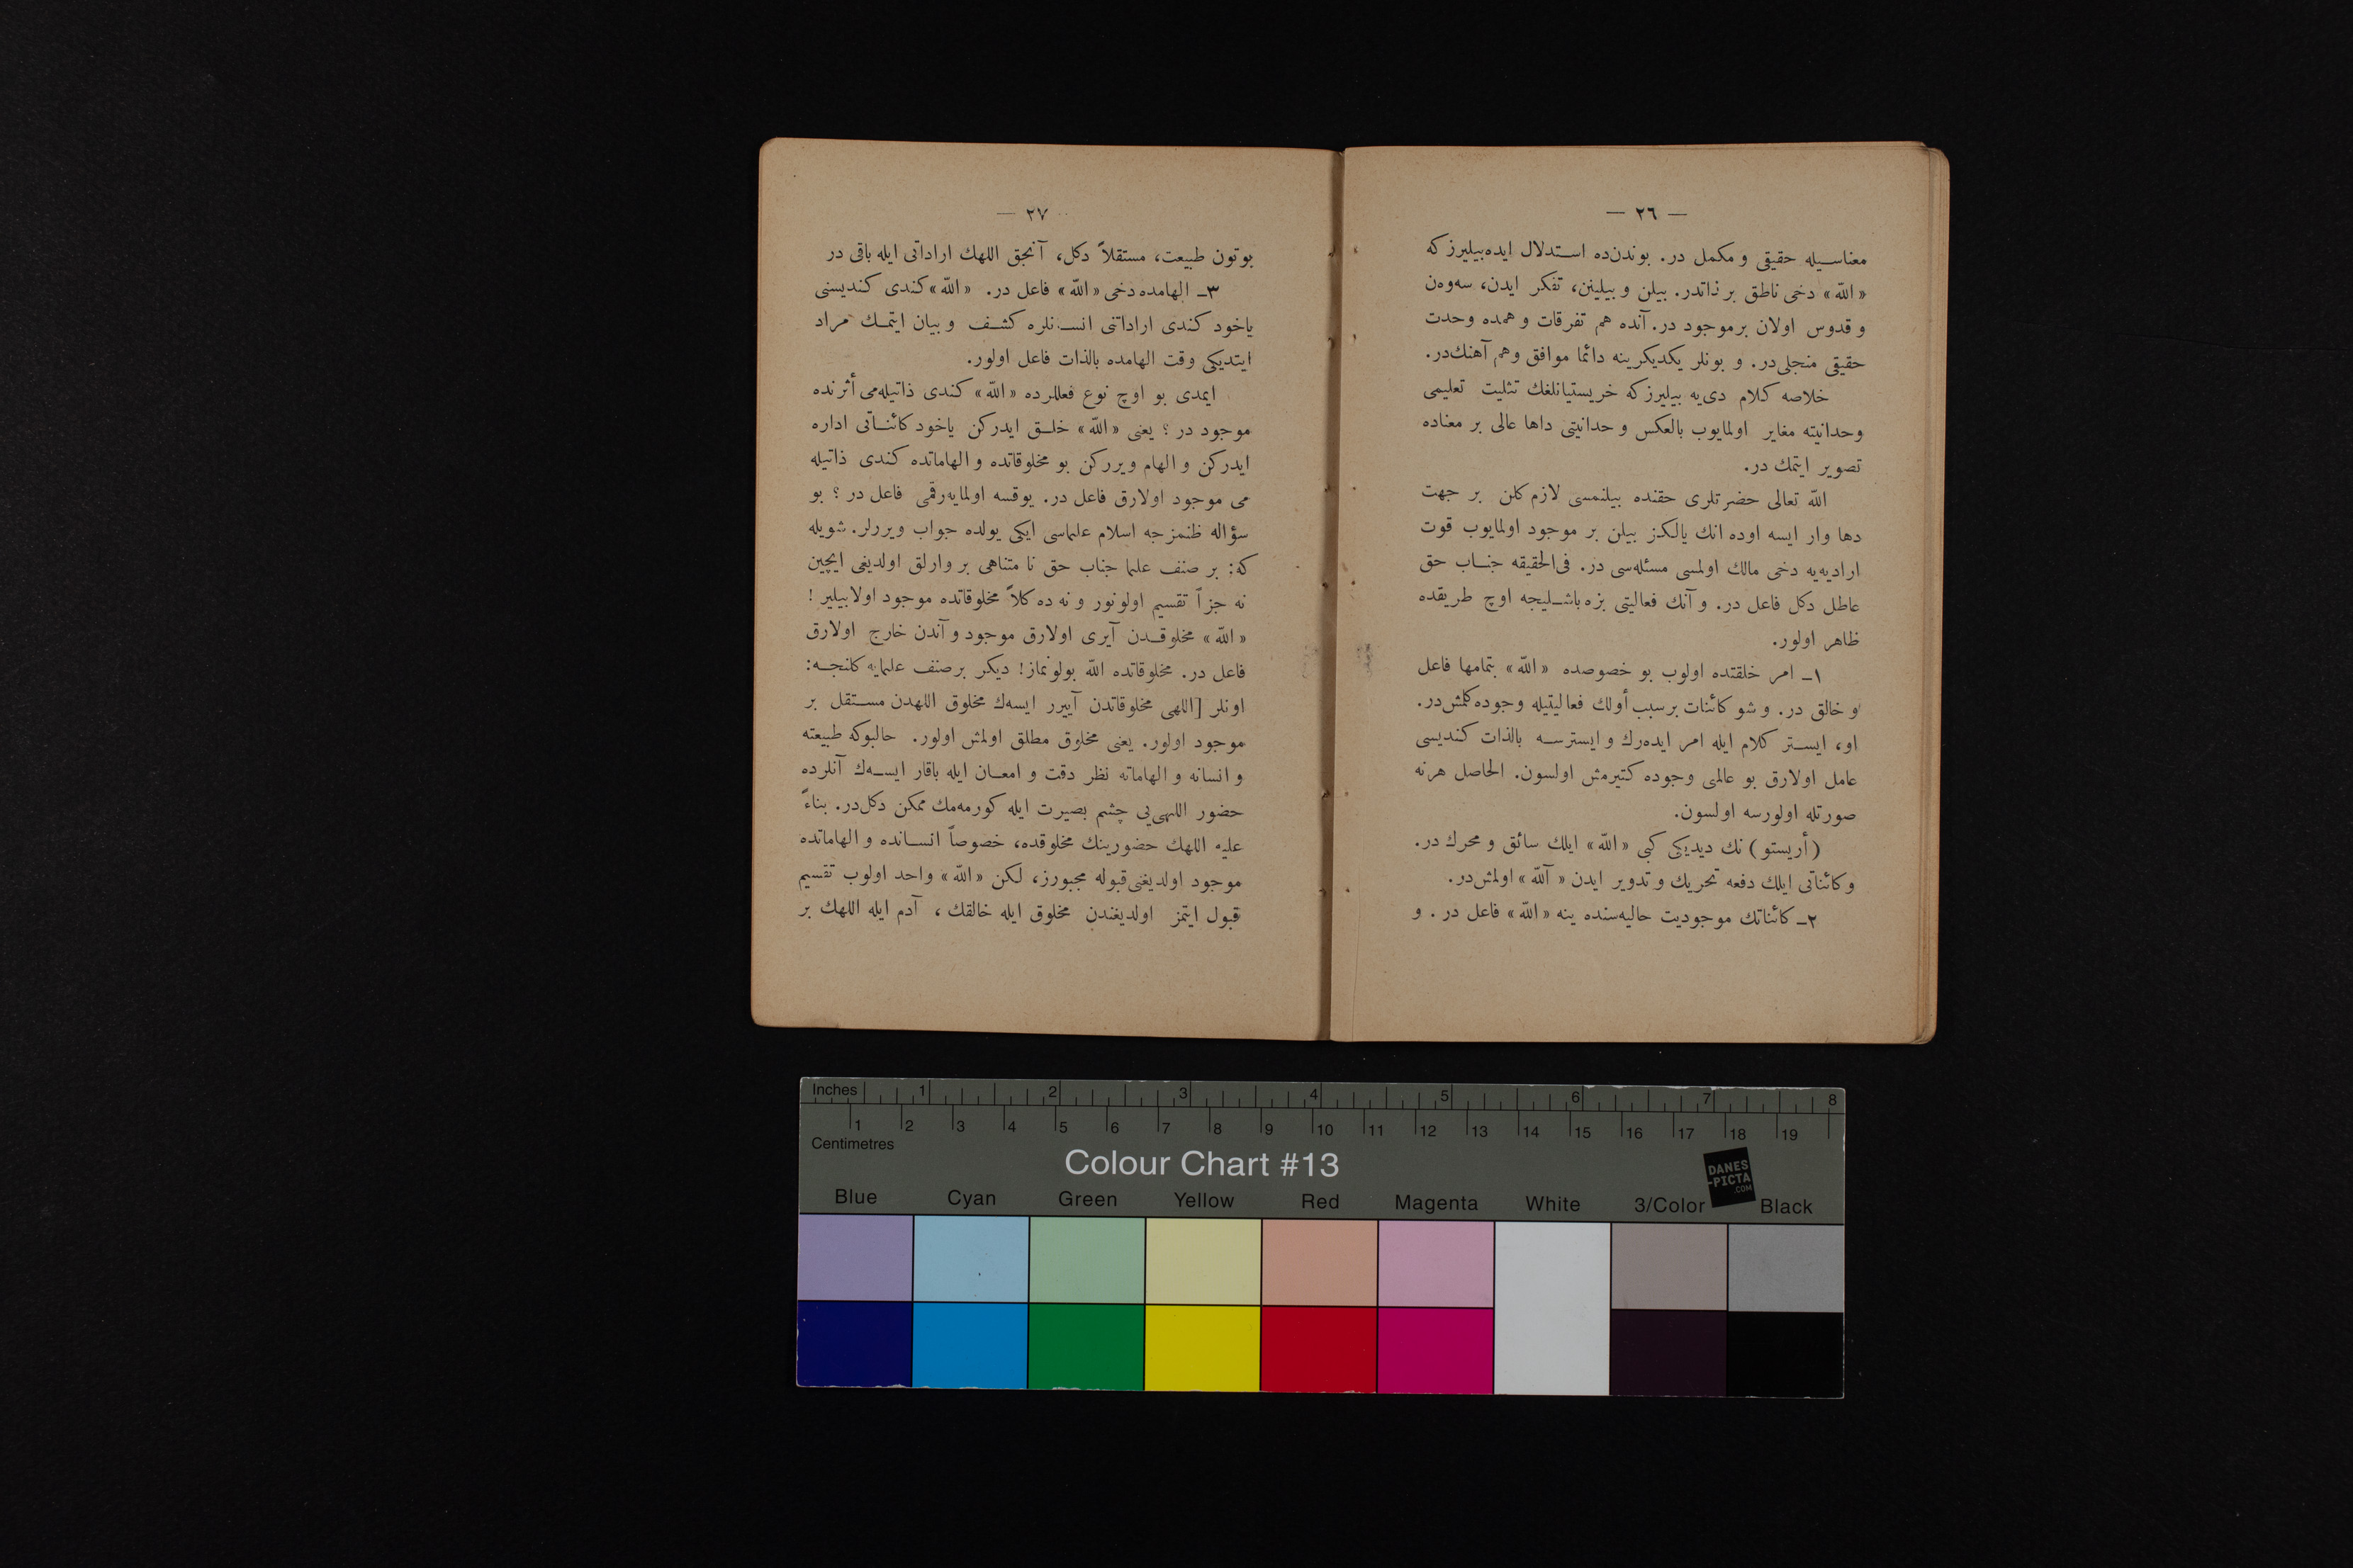 — ٢٦ —
معناسيله حقيقى و مكمل در. بوندن‌ده استدلال ايده‌بيليرز كه
«الله» دخى ناطق بر ذاتدر. بيلن و بيلينن، تفكر ايدن، سه‌وه‌ن
و قدوس اولان بر موجود در. آنده هم تفرقات و همده وحدت
حقيقى منجلى‌در. و بونلر يكديكرينه دائما موافق وهم آهنك‌در.
خلاصه كلام دى‌يه بيليرز كه خريستيانلغك تثليت تعليمى
وحدانيته مغاير اولمايوب بالعكس وحدانيتى داها عالى بر معناده
تصوير ايتمك در.
الله تعالى حضرتلرى حقنده بيلنمسى لازم كلن بر جهت
دها وار ايسه اوده انك يالكز بيلن بر موجود اولمايوب قوت
اراديه‌يه دخى مالك اولمسى مسئله‌سى در. فى‌الحقيقه جناب حق
عاطل دكل فاعل در. و آنك فعاليتى بزه باشليجه اوچ طريقده
ظاهر اولور.
١ـ امر خلقتده اولوب بو خصوصده «الله» بتمامها فاعل
و خالق در. و شو كائنات بر سبب أولك فعاليتيله وجوده كلمش‌در.
او، ايستر كلام ايله امر ايده‌رك و ايسترسه بالذات كنديسى
عامل اولارق بو عالمى وجوده كتيرمش اولسون. الحاصل هرنه
صورتله اولورسه اولسون.
(أريستو) نك ديديكى كبى «الله» ايلك سائق و محرك در.
و كائناتى ايلك دفعه تحريك و تدوير ايدن «آلله» اولمش‌در.
٢ـ كائناتك موجوديت حاليه‌سنده ينه «الله» فاعل در. و
٢٧ —
بوتون طبيعت، مستقلاً دكل، آنجق اللهك اراداتى ايله باقى در
٣ـ الهامده دخى «الله» فاعل در. «الله» كندى كنديسنى
ياخود كندى اراداتنى انسانلره كشف و بيان ايتمك مراد
ايتديكى وقت الهامده بالذات فاعل اولور.
ايمدى بو اوچ نوع فعللرده «الله» كندى ذاتيله‌مى أثرنده
موجود در؟ يعنى «الله» خلق ايدركن ياخود كائناتى اداره
ايدركن و الهام ويرركن بو مخلوقاتده و الهاماتده كندى ذاتيله
مى موجود اولارق فاعل در. يوقسه اولمايه‌رقمى فاعل در؟ بو
سؤاله ظنمزجه اسلام علماسى ايكى يولده جواب ويررلر. شويله
كه: بر صنف علما جناب حق نا متناهى بر وارلق اولديغى ايچين
نه جزأً تقسيم اولونور و نه ده كلاً مخلوقاتده موجود اولابيلير!
«الله» مخلوقدن آيرى اولارق موجود و آندن خارج اولارق
فاعل در. مخلوقاتده الله بولونماز! ديكر بر صنف علمايه كلنجه:
اونلر [اللهى مخلوقاتدن آييرر ايسه‌ك مخلوق اللهدن مستقل بر
موجود اولور. يعنى مخلوق مطلق اولمش اولور. حالبوكه طبيعته
و انسانه و الهاماته نظر دقت و امعان ايله باقار ايسه‌ك آنلرده
حضور اللهى‌يى چشم بصيرت ايله كورمه‌مك ممكن دكل‌در. بناءً
عليه اللهك حضورينك مخلوقده، خصوصاً انسانده و الهاماتده
موجود اولديغنى قبوله مجبورز، لكن «الله» واحد اولوب تقسيم
قبول ايتمز اولديغندن مخلوق ايله خالقك، آدم ايله اللهك بر
Inches 1 2 3 4 5 6 7 8
1 2 3 4 5 6 7 8 9 10 11 12 13 14 15 16 17 18 19
Centimetres
Colour Chart #13
DANES
-PICTA
.COM
Blue Cyan Green Yellow Red Magenta White 3/Color Black